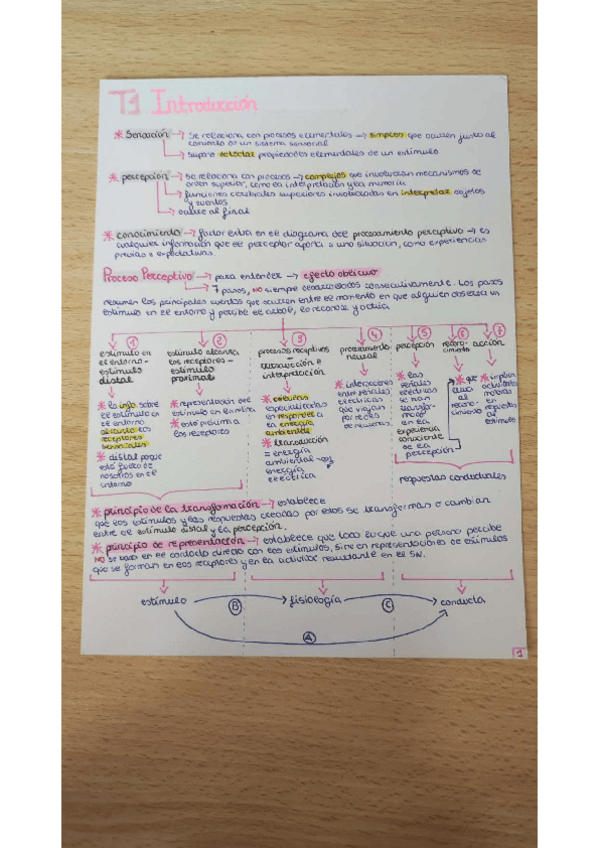 T1 Introducción
* Sensación → se relaciona con procesos elementales → simples que ocurren justo al
comienzo de un sistema sensorial
→ supone detectar propiedades elementales de un estímulo
* percepción → se relaciona con procesos → complejos que involucran mecanismos de
orden superior, como la interpretación y la memoria
→ funciones cerebrales superiores involucradas en interpretar objetos
y eventos
→ ocurre al final
* conocimiento → factor extra en el diagrama del procesamiento perceptivo → es
cualquier información que el perceptor aporta a una situación, como experiencias
previas o expectativas.
Proceso Perceptivo → para entender → ejemplo obstáculo
→ 7 pasos, NO siempre desarrollados consecutivamente. Los pasos
resumen los principales eventos que ocurren entre el momento en que alguien observa un
estímulo en el entorno y percibe el árbol, lo reconoce y actúa
1 2 3 4 5 6 7
estímulo en
el entorno-
estímulo
distal
* la info. sobre
el estímulo en
el entorno
alcanza los
receptores
sensoriales
* distal porque
está fuera de
nosotros en el
entorno
estímulo alcanza
los receptores
- estímulo
proximal
* representación del
estímulo en la retina
* está próximo a
los receptores
procesos receptivos
- transducción e
interpretación
* células
especializadas
en responder a
la energía
ambiental
* transducción
= energía
ambiental →
energía
eléctrica
procesamiento
neural
* interacciones
entre señales
eléctricas
que viajan
por redes
de neuronas
percepción
* las
señales
eléctricas
se han
transfor-
mado
en la
experiencia
consciente
de la
percepción
recono-
cimiento
acción
* implica
actividades
motoras
en
respuesta
estímulo
respuestas conductuales
* principio de la transformación → establece
que los estímulos y las respuestas creadas por estos se transforman o cambian
entre el estímulo distal y la percepción.
* principio de representación → establece que todo lo que una persona percibe
NO se basa en el contacto directo con los estímulos, sino en representaciones de estímulos
que se forman en los receptores y en la actividad resultante en el SN.
estímulo B fisiología C conducta
A
1